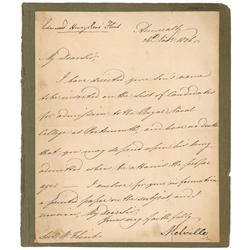 Admiralty
My Dear Sir,
I have directed your Son's name
to be inserted on the List of Candidates
for admission to the Royal Naval
College at Portsmouth, and have no doubt
that you may depend upon his being
admitted when he attains the proper
age.
I enclose for your information
a printed paper on the subject and I
remain, My Dear Sir,
Yours very faithfully
Melville